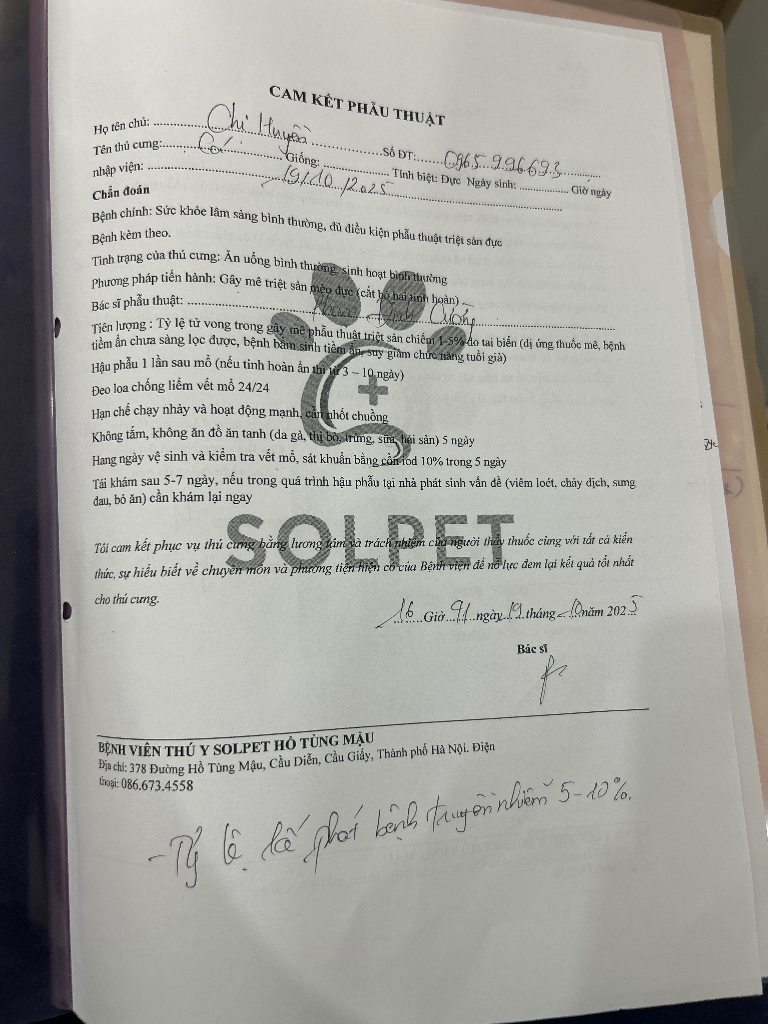 CAM KẾT PHẪU THUẬT
Họ tên chủ: Chị Huyền Số ĐT: 0965.996.693
Tên thú cưng: Giống: Tính biệt: Đực Ngày sinh: Giờ ngày
nhập viện: 19/10/2025
Chẩn đoán
Bệnh chính: Sức khỏe lâm sàng bình thường, đủ điều kiện phẫu thuật triệt sản đực
Bệnh kèm theo.
Tình trạng của thú cưng: Ăn uống bình thường, sinh hoạt bình thường
Phương pháp tiến hành: Gây mê triệt sản mèo đực (cắt bỏ hai tinh hoàn)
Bác sĩ phẫu thuật: Cường
Tiên lượng : Tỷ lệ tử vong trong gây mê phẫu thuật triệt sản chiếm 1-5% do tai biến (dị ứng thuốc mê, bệnh
tiềm ẩn chưa sàng lọc được, bệnh bẩm sinh tiềm ẩn, suy giảm chức năng tuổi già)
Hậu phẫu 1 lần sau mổ (nếu tinh hoàn ẩn thì từ 3 – 10 ngày)
Đeo loa chống liếm vết mổ 24/24
Hạn chế chạy nhảy và hoạt động mạnh, cần nhốt chuồng
Không tắm, không ăn đồ ăn tanh (da gà, thịt bò, trứng, sữa, hải sản) 5 ngày
Hang ngày vệ sinh và kiểm tra vết mổ, sát khuẩn bằng cồn iod 10% trong 5 ngày
Tái khám sau 5-7 ngày, nếu trong quá trình hậu phẫu tại nhà phát sinh vấn đề (viêm loét, chảy dịch, sưng
đau, bỏ ăn) cần khám lại ngay
SOLPET
Tôi cam kết phục vụ thú cưng bằng lương tâm và trách nhiệm của người thầy thuốc cùng với tất cả kiến
thức, sự hiểu biết về chuyên môn và phương tiện hiện có của Bệnh viện để nỗ lực đem lại kết quả tốt nhất
cho thú cưng.
16 Giờ 91 ngày 19 tháng 10 năm 2025
Bác sĩ
BỆNH VIÊN THÚ Y SOLPET HỒ TÙNG MẬU
Địa chỉ: 378 Đường Hồ Tùng Mậu, Cầu Diễn, Cầu Giấy, Thành phố Hà Nội. Điện
thoại: 086.673.4558
- Tỷ lệ kế phát bệnh truyền nhiễm 5-10%.